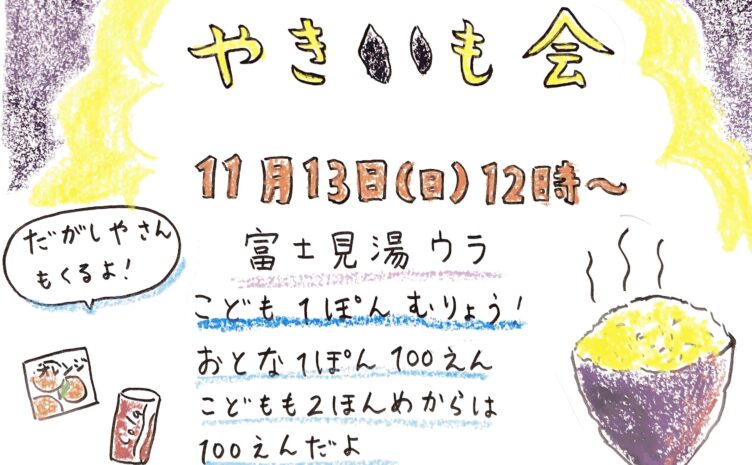 やきいも会
11月13日(日)12時～
富士見湯ウラ
だがしやさん
もくるよ!
こども1ぽんむりょう!
おとな1ぽん100えん
こどもも2ほんめからは
100えんだよ
オレンジ
Cola